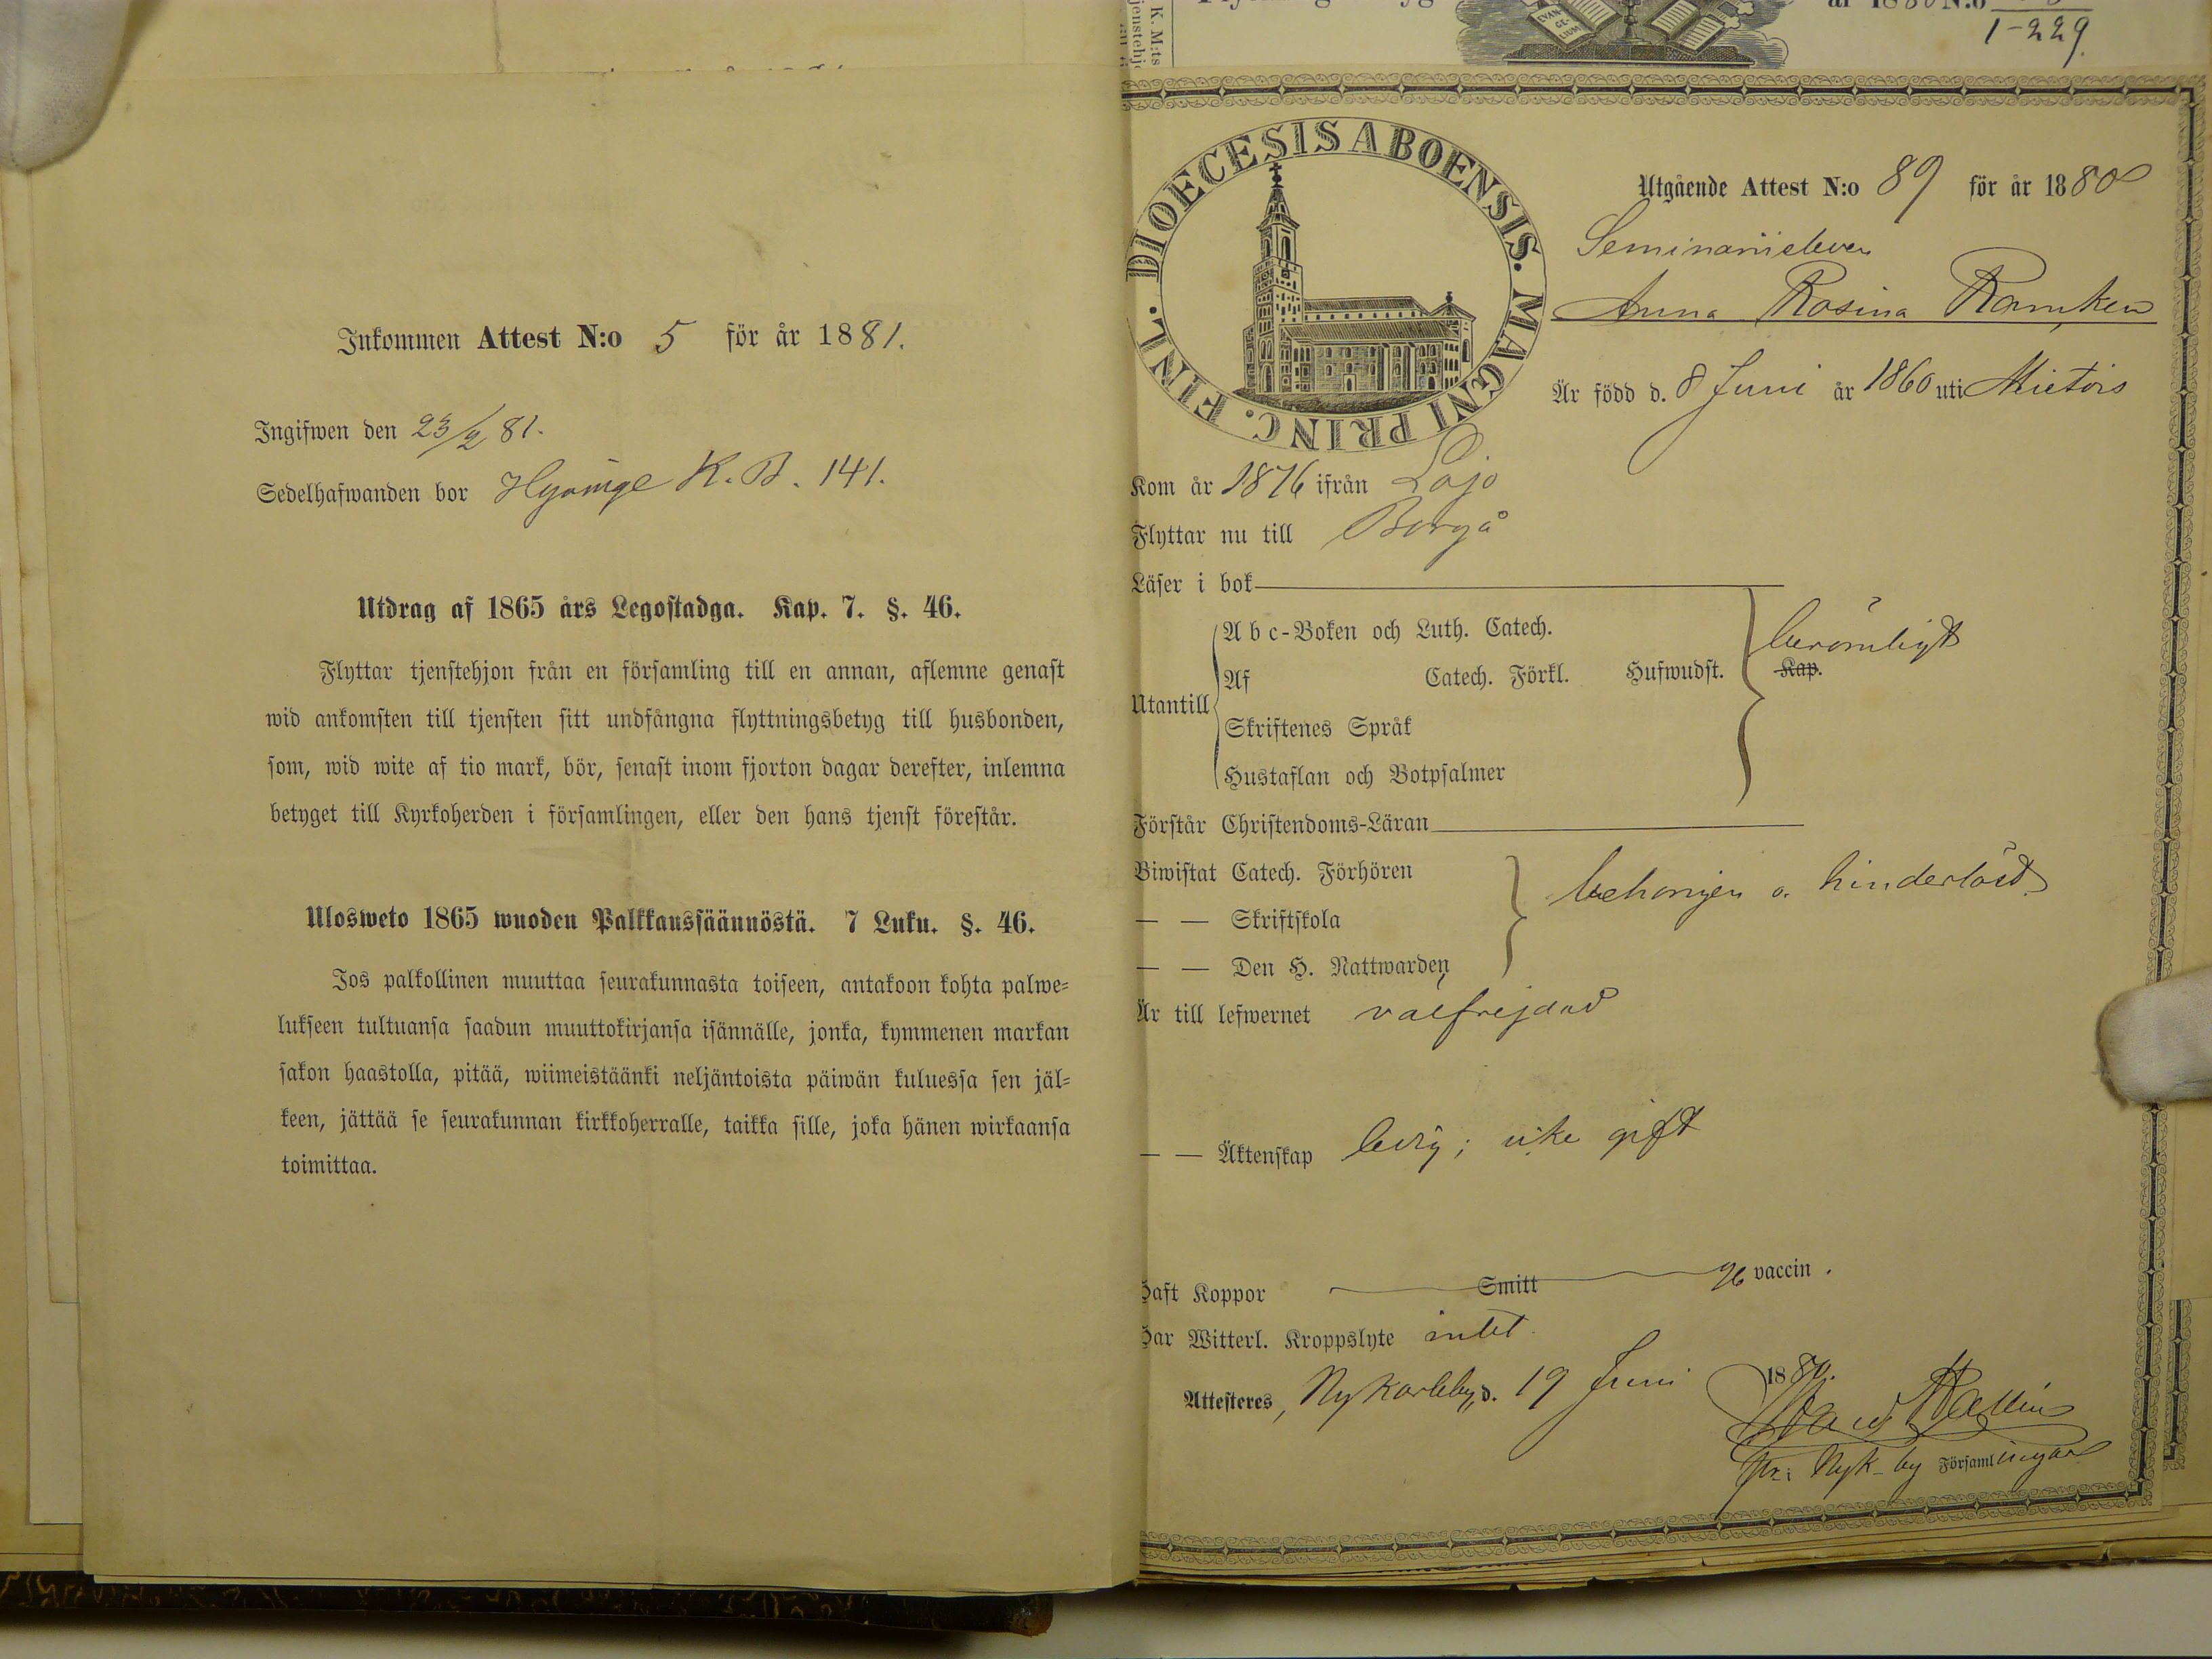 Inkommen Attest N:o 5 för år 1881.
Ingifwen den 23/2 81.
Sedelhafwanden bor Hyvinge K. B. 141.
Utdrag af 1865 års Legostadga. Kap. 7. §. 46.
Flyttar tjenstehjon från en församling till en annan, aflemne genast
wid ankomsten till tjensten sitt undfångna flyttningsbetyg till husbonden,
som, wid wite af tio mark, bör, senast inom fjorton dagar derefter, inlemna
betyget till Kyrkoherden i församlingen, eller den hans tjenst förestår.
Ulosweto 1865 wuoden Palkkaussäännöstä. 7 Luku. §. 46.
Jos palkollinen muuttaa seurakunnasta toiseen, antakoon kohta palwe=
lukseen tultuansa saadun muuttokirjansa isännälle, jonka, kymmenen markan
sakon haastolla, pitää, wiimeistäänki neljäntoista päiwän kuluessa sen jäl=
keen, jättää se seurakunnan kirkkoherralle, taikka sille, joka hänen wirkaansa
toimittaa.
K. M:ts
jenstehj
år 1880 N:o
1-229.
EVAN-
GE-
LIUM
DIOECESIS ABOENSIS. MAGNI PRINC. FINL.
Utgående Attest N:o 89 för år 1880
Seminariieleven
Anna Rosina Ramken
Är född d. 8 Juni år 1860 uti Mietois
Kom år 1876 ifrån Lojo
Flyttar nu till Borgå
Läser i bok
Abc-Boken och Luth. Catech.
berömligt
Af Catech. Förkl. Hufwudst. Kap.
Utantill
Skriftenes Språk
Hustaflan och Botpsalmer
Förstår Christendoms-Läran
Biwistat Catech. Förhören
behörigen o. hinderlöst
— — Skriftskola
— — Den H. Nattwarden
Är till lefwernet välfrejdad
— — Äktenskap ledig; icke gift
Haft Koppor Smitt vaccin.
Har Witterl. Kroppslyte intet.
Attesteres, Nykarleby, d. 19 Juni 1880.
Nyk-by Församlingar